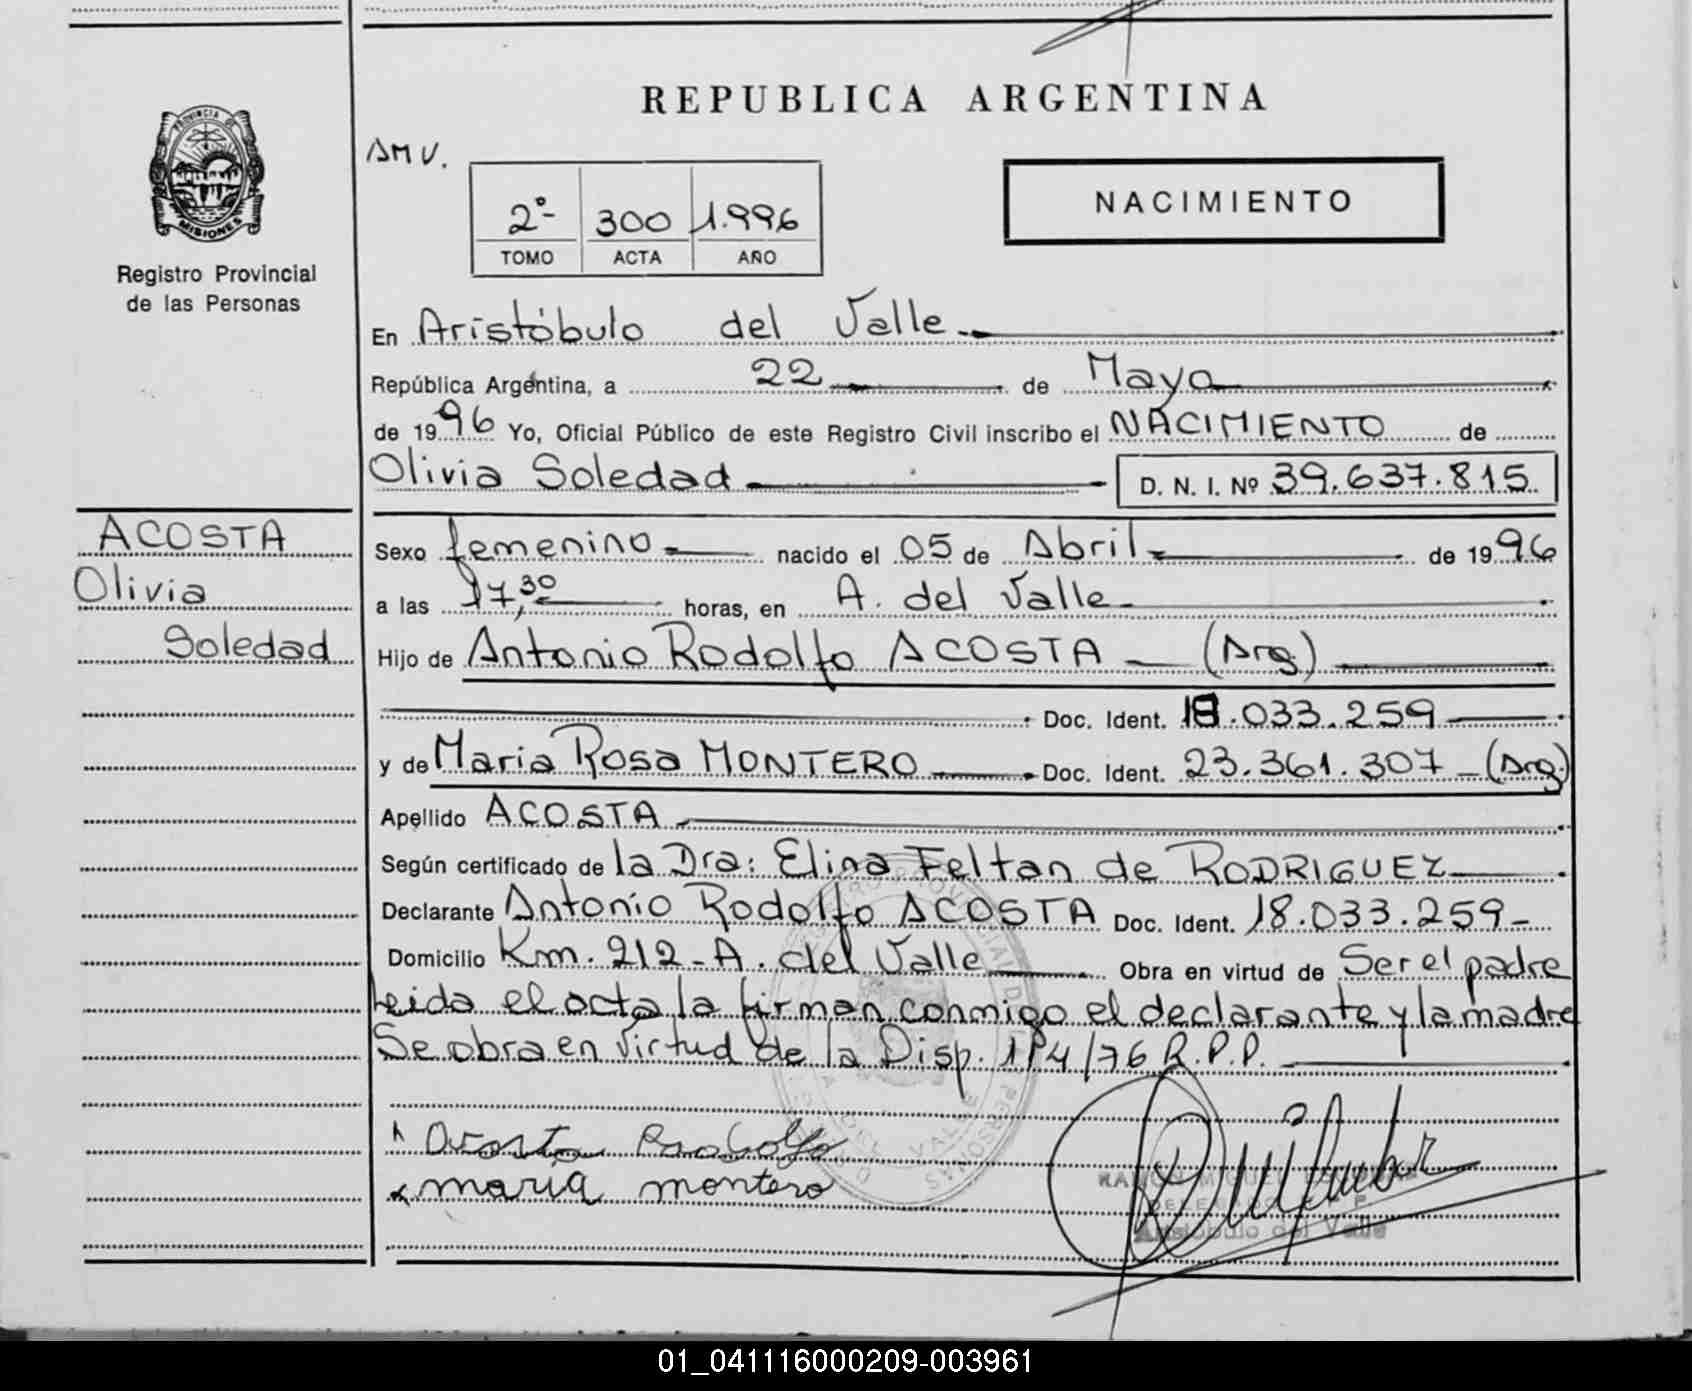 REPUBLICA ARGENTINA
PROVINCIA DE MISIONES
Registro Provincial
de las Personas
AMV.
2º- 300 1.996
TOMO ACTA AÑO
NACIMIENTO
En Aristóbulo del Valle
República Argentina, a 22 de Mayo
de 1996 Yo, Oficial Público de este Registro Civil inscribo el NACIMIENTO de
Olivia Soledad D. N. I. Nº 39.637.815
ACOSTA
Olivia
Soledad
Sexo femenino nacido el 05 de Abril de 1996
a las 17,30 horas, en A. del Valle
Hijo de Antonio Rodolfo ACOSTA (Arg)
Doc. Ident. 18.033.259
y de Maria Rosa MONTERO Doc. Ident. 23.361.307 (Arg)
Apellido ACOSTA
Según certificado de la Dra: Elina Feltan de RODRIGUEZ
Declarante Antonio Rodolfo ACOSTA Doc. Ident. 18.033.259-
Domicilio Km. 212-A. del Valle Obra en virtud de Ser el padre
Leida el acta la firman conmigo el declarante y la madre
Se obra en virtud de la Disp. 184/76 R.P.P.
Acosta Rodolfo
maria montero
RAMON MIGUEL
DELEGADO
Aristóbulo del Valle
01_041116000209-003961